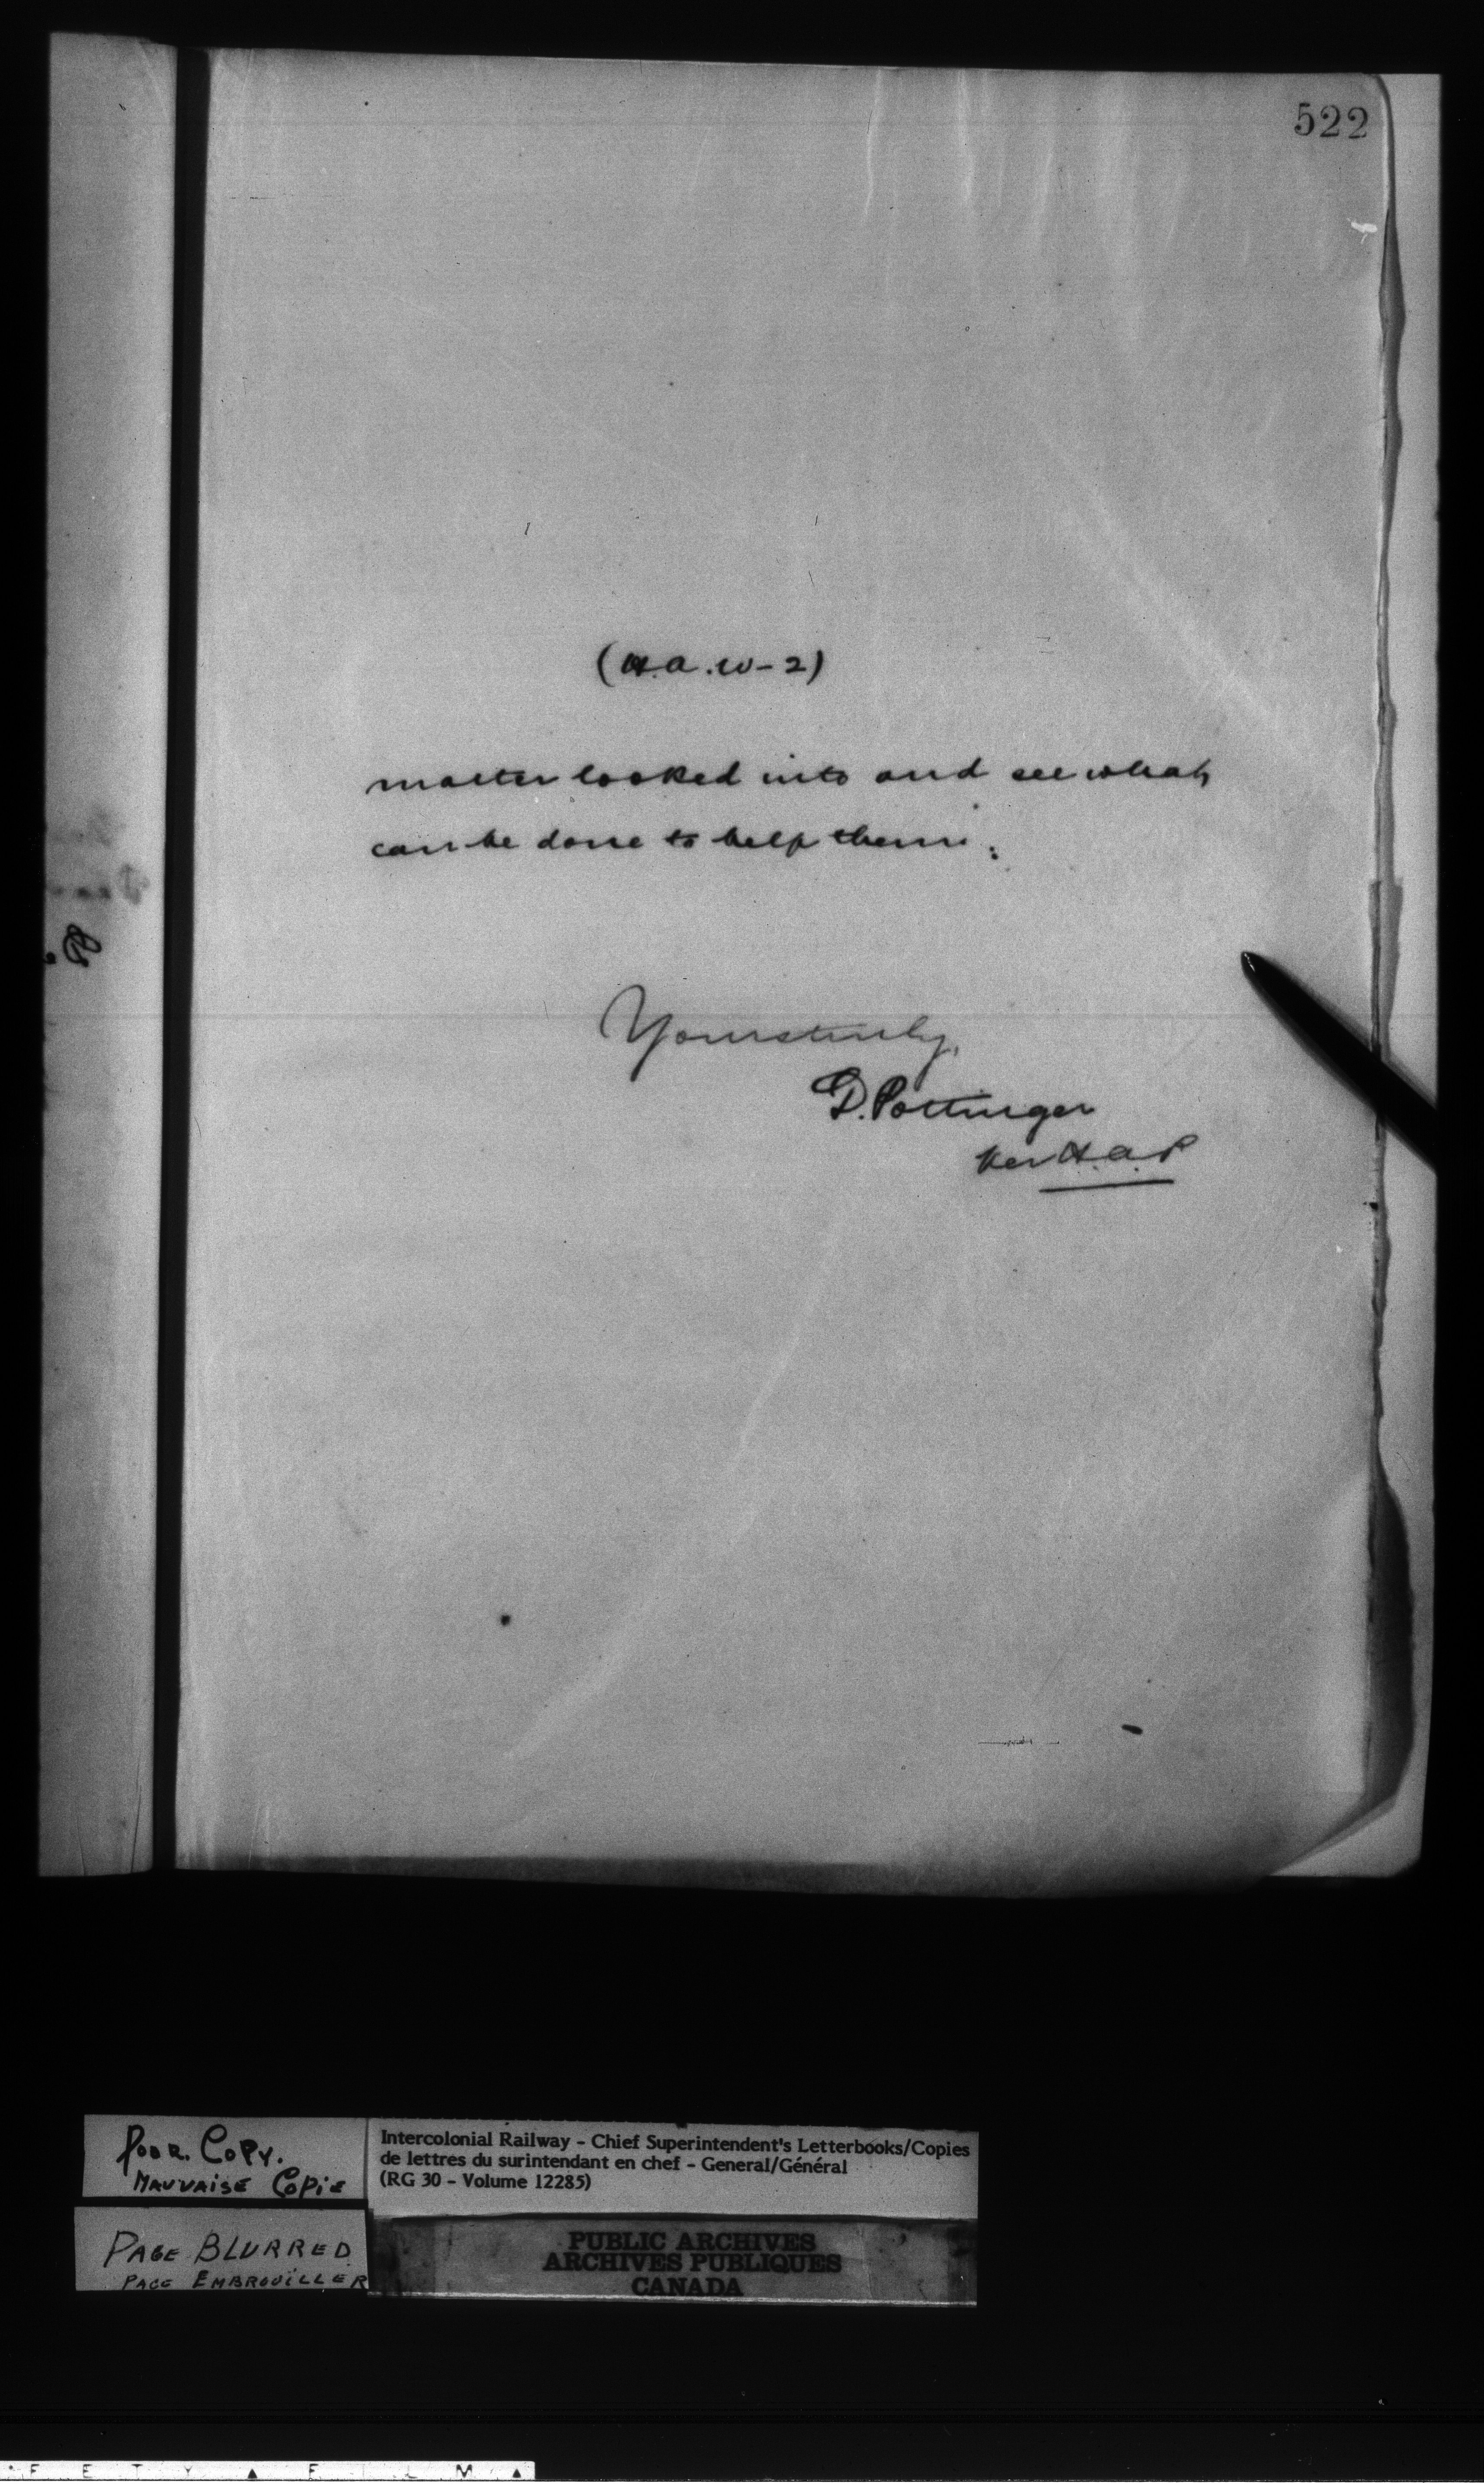 522
(H.A.W-2)
matter looked into and see what
can be done to help them.
Yours truly,
D. Pottinger
Per H.A.P
Poor Copy.
Mauvaise Copie
Intercolonial Railway - Chief Superintendent's Letterbooks/Copies
de lettres du surintendant en chef - General/Général
(RG 30 - Volume 12285)
Page Blurred
Page Embrouiller
PUBLIC ARCHIVES
ARCHIVES PUBLIQUES
CANADA
F E T Y ▲ F I L M ▲